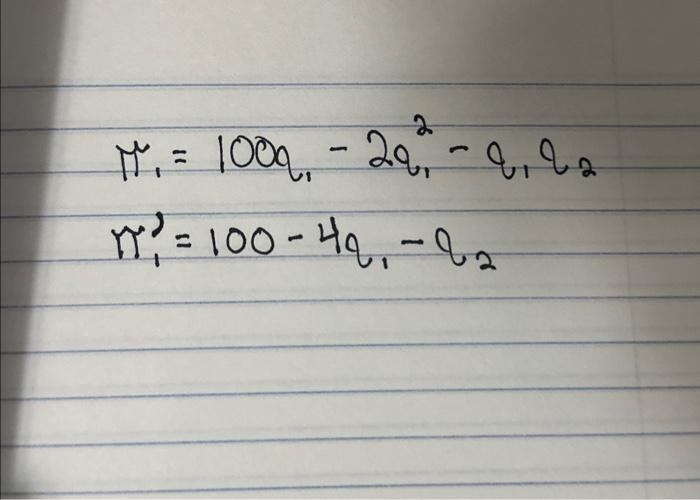 π₁ = 100q₁ - 2q₁² - q₁q₂
π₁' = 100 - 4q₁ - q₂